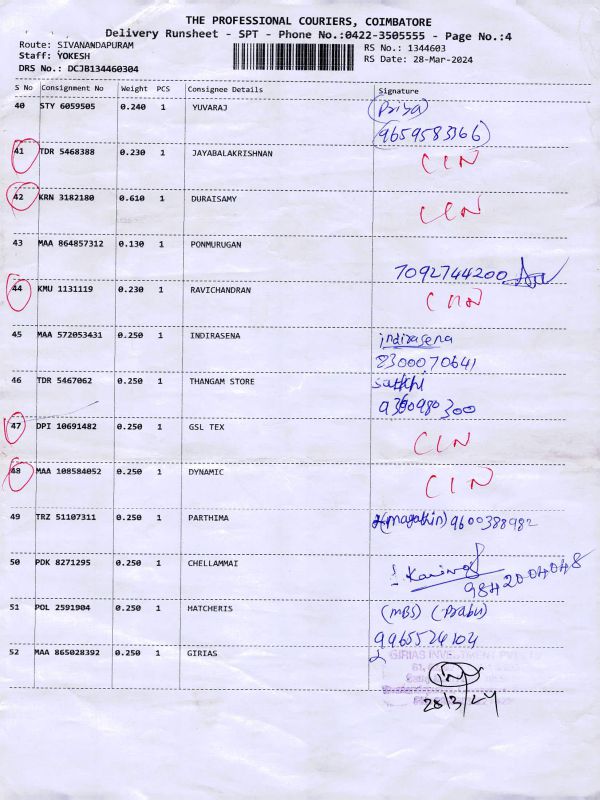 THE PROFESSIONAL COURIERS, COIMBATORE
Delivery Runsheet - SPT - Phone No.:0422-3505555 - Page No.:4
Route: SIVANANDAPURAM
RS No.: 1344603
Staff: YOKESH
RS Date: 28-Mar-2024
DRS No.: DCJB134460304
S No Consignment No Weight PCS Consignee Details Signature
40 STY 6059505 0.240 1 YUVARAJ (Priya)
(9659583366)
41 TDR 5468388 0.230 1 JAYABALAKRISHNAN CIN
42 KRN 3182180 0.610 1 DURAISAMY CIN
43 MAA 864857312 0.130 1 PONMURUGAN
7092744200
44 KMU 1131119 0.230 1 RAVICHANDRAN CIN
45 MAA 572053431 0.250 1 INDIRASENA indirasena
8300070641
46 TDR 5467062 0.250 1 THANGAM STORE Sakthi
47 DPI 10691482 0.250 1 GSL TEX CIN
48 MAA 108584052 0.250 1 DYNAMIC CIN
49 TRZ 51107311 0.250 1 PARTHIMA 9600388982
50 PDK 8271295 0.250 1 CHELLAMMAI
9842004048
51 POL 2591904 0.250 1 HATCHERIS (MBS) (Prabu)
9965524104
52 MAA 865028392 0.250 1 GIRIAS GIRIAS INVESTMENT
28/3/24